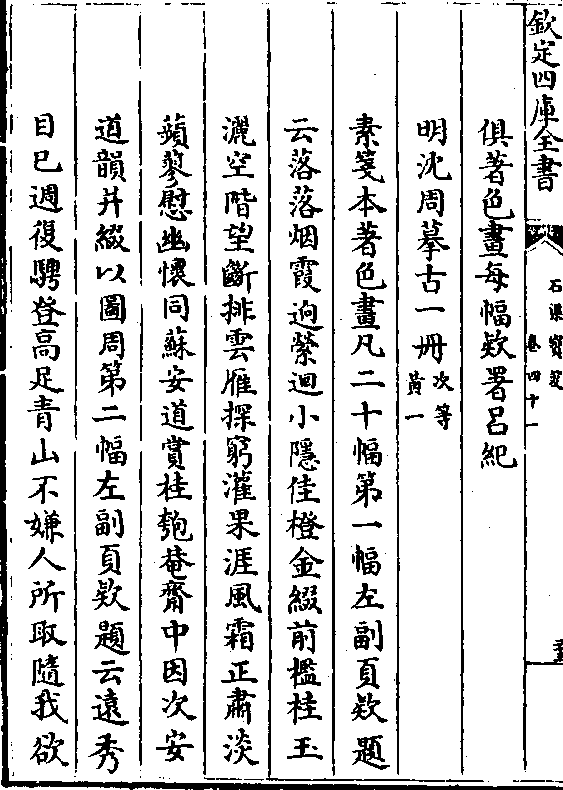 欽定四庫全書
石渠寶笈
卷四十一
俱著色畫每幅欵署呂紀
明沈周摹古一冊次等
黃一
素箋本著色畫凡二十幅第一幅左副頁欵題
云落落烟霞逈縈迴小隱佳橙金綴前檻桂玉
灑空階望斷排雲雁探窮灌果涯風霜正肅淡
蘋蓼慰幽懷同蘇安道賞桂匏菴齋中因次安
道韻并綴以圖周第二幅左副頁欵題云遠秀
目已週復騁登高足青山不嫌人所取隨我欲